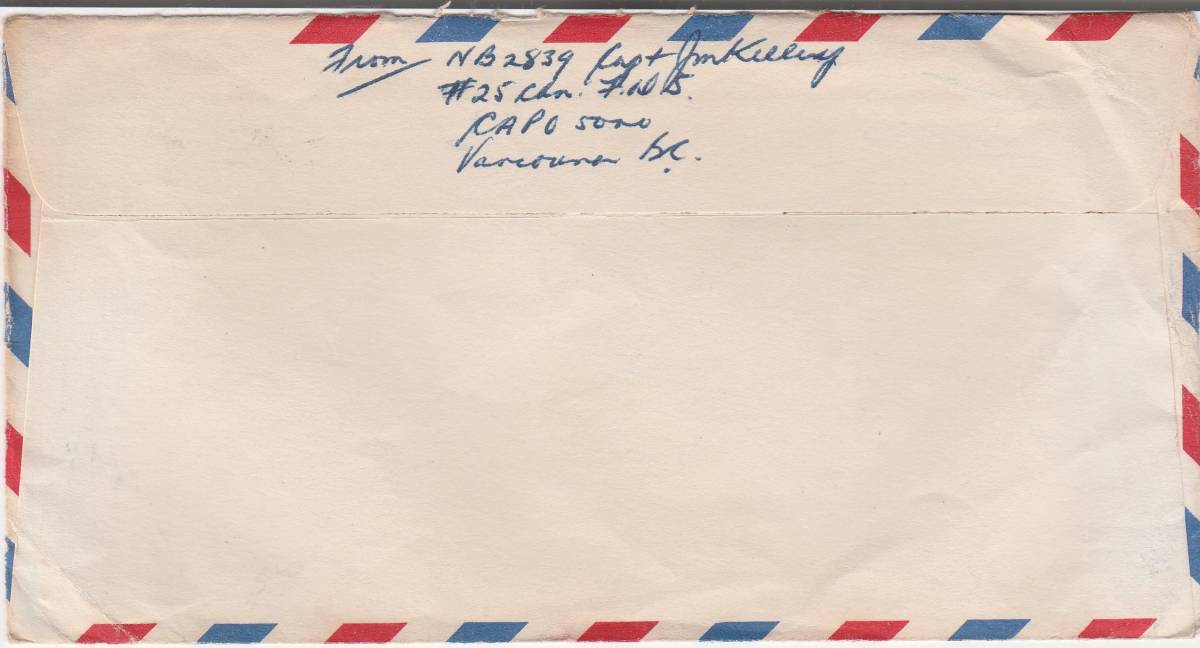 From NB2839 Capt Jm Kelleny
#25 Can. F.D.S.
CAPO 5000
Vancouver B.C.